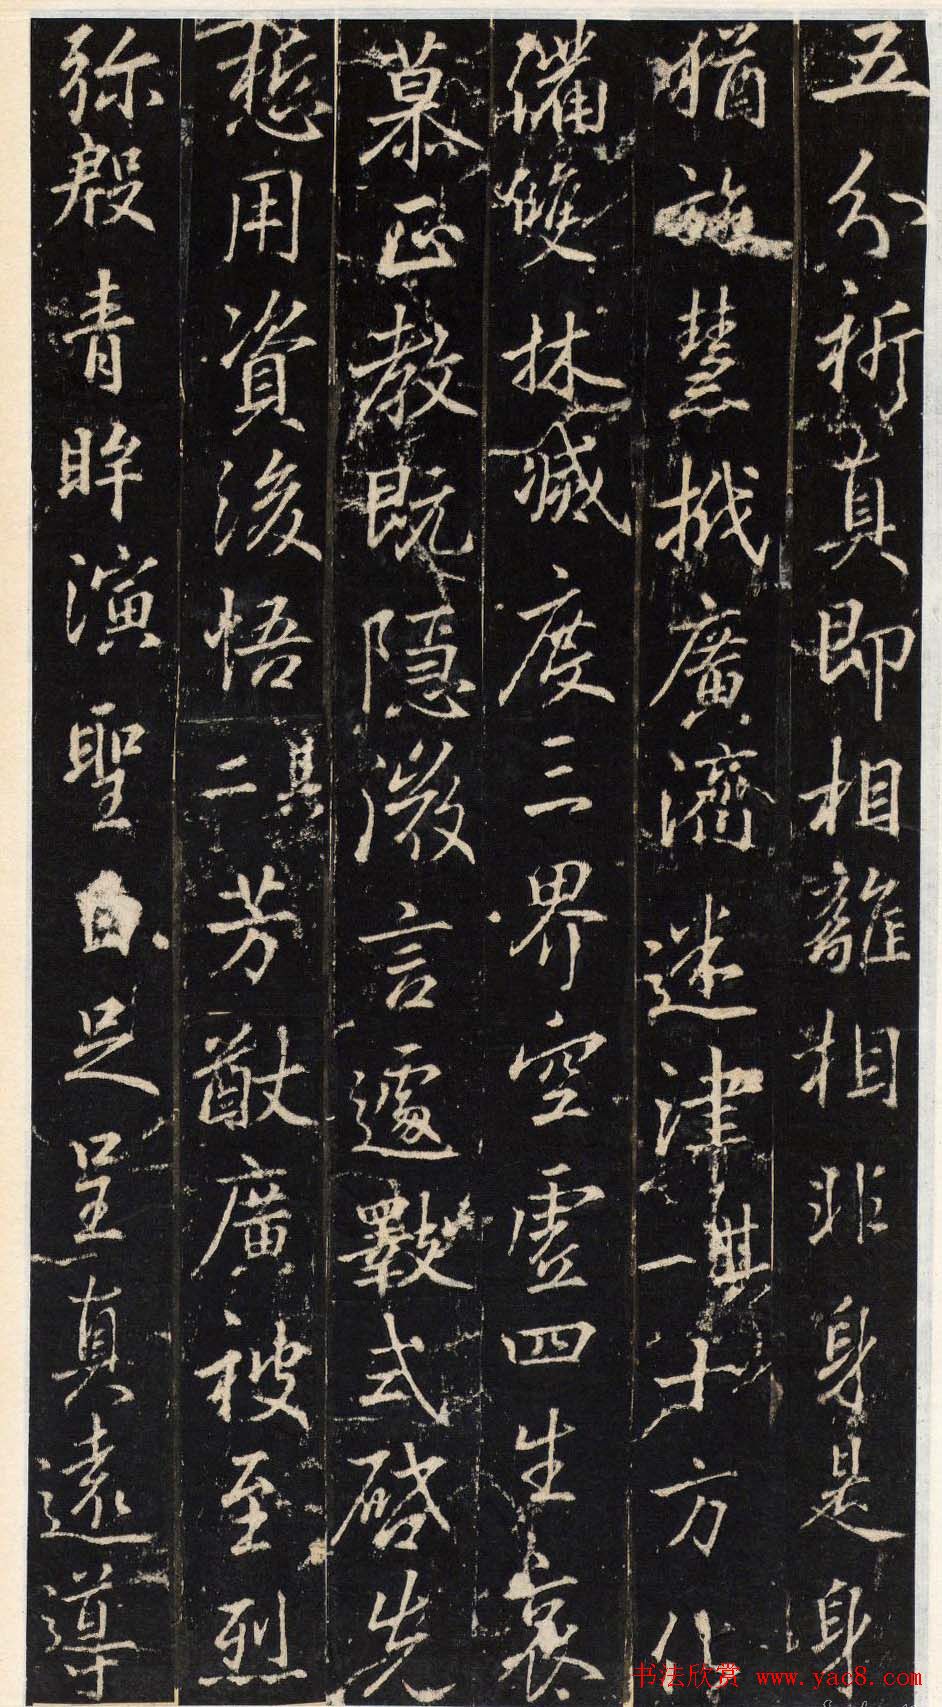 五分祈真即相離相非身是身
猶施慧檝廣濟迷津其一十方化
備雙林滅度三界空虛四生哀
慕正教既隱微言遽斁式啓先
愁用資後悟其二芳猷廣被至烈
弥殷青眸演聖白足呈真遠導
书法欣赏 www.yac8.com